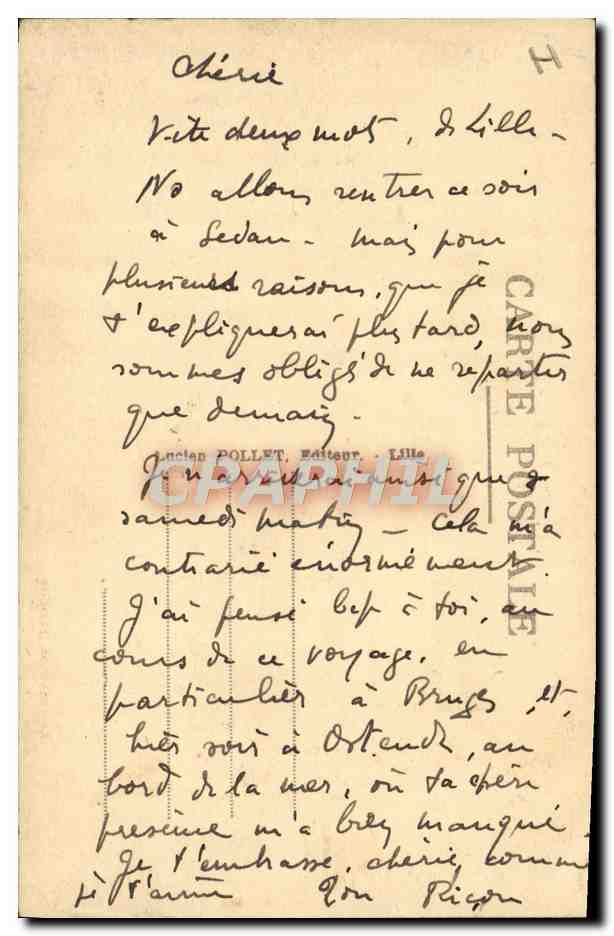 I
Chérie
Vite deux mots, de Lille -
Ns allons rentrer ce soir
à Sedan - mais pour
plusieurs raisons, que je
t'expliquerai plus tard, nous
sommes obligés de ne repartir
que demain -
Je n'arriverai ainsi que
samedi matin - Cela m'a
contrarié énormément.
J'ai pensé bcp à toi, au
cours de ce voyage, en
particulier à Bruges, et,
hier soir à Ostende, au
bord de la mer, où ta chère
présence m'a bien manqué.
Je t'embrasse, chérie, comme
je t'aime Ton
CARTE POSTALE
Lucien POLLET, Editeur. - Lille
CPAPHIL